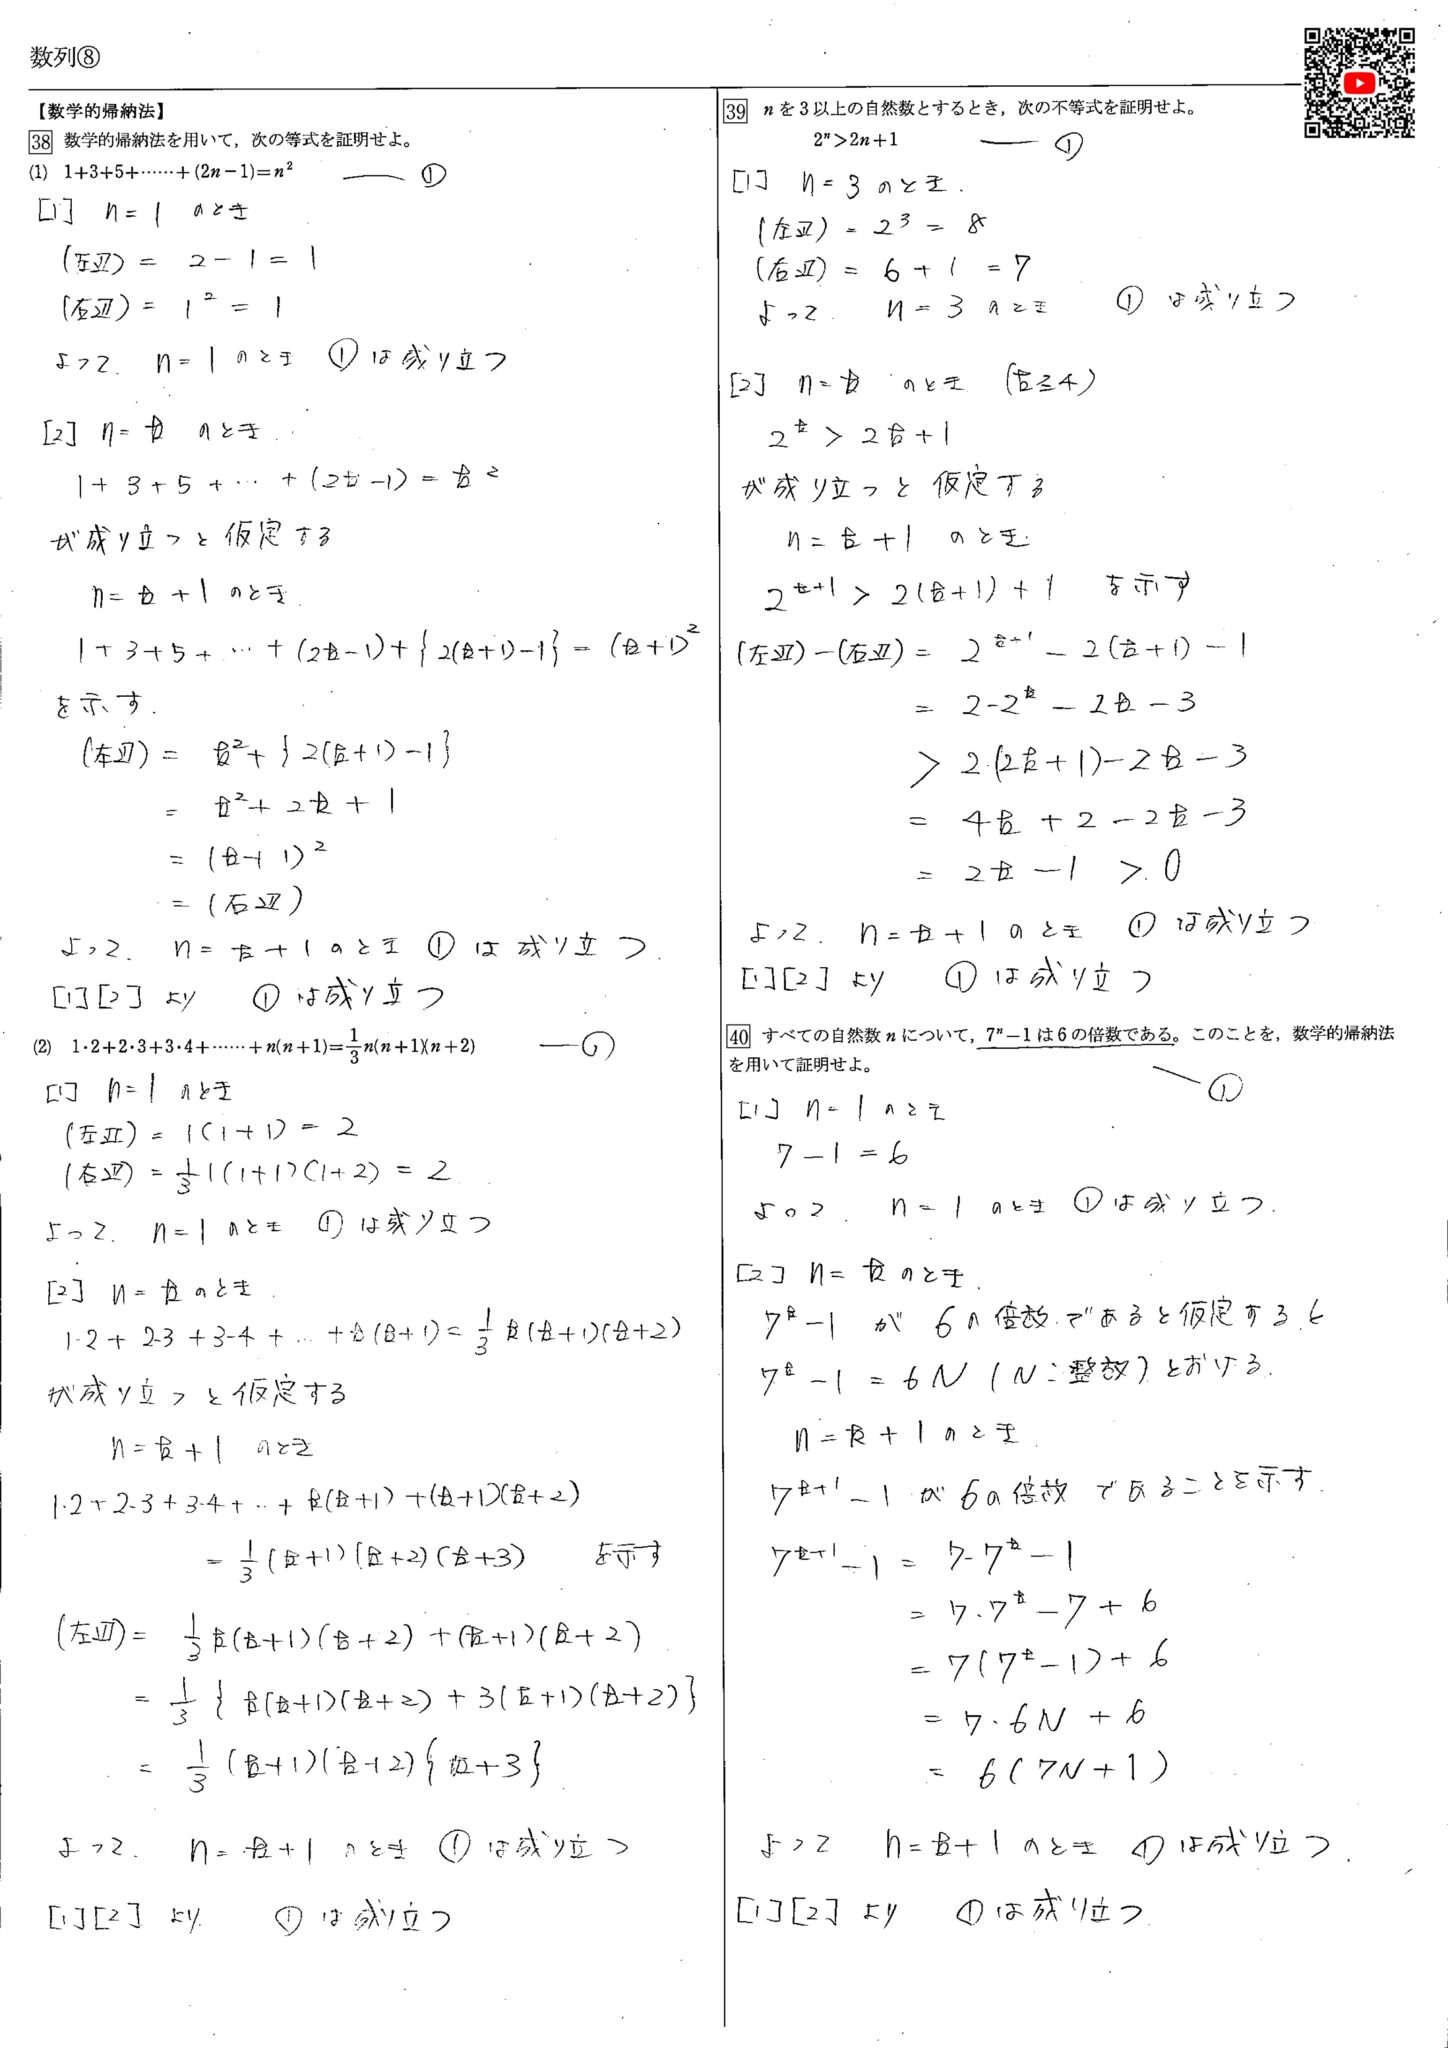 数列⑧
【数学的帰納法】
38 数学的帰納法を用いて，次の等式を証明せよ。
(1) 1+3+5+……+(2n-1)=n² ―― ①
[1] n=1 のとき
(左辺) = 2-1=1
(右辺) = 1² = 1
よって. n=1 のとき ①は成り立つ
[2] n=k のとき.
1+3+5+…+(2k-1)=k²
が成り立つと仮定する
n=k+1 のとき.
1+3+5+…+(2k-1)+{2(k+1)-1}=(k+1)²
を示す.
(左辺) = k²+{2(k+1)-1}
= k²+2k+1
= (k+1)²
= (右辺)
よって. n=k+1 のとき ①は成り立つ.
[1][2] より ①は成り立つ
(2) 1·2+2·3+3·4+……+n(n+1)=1/3n(n+1)(n+2) ―― ①
[1] n=1 のとき
(左辺) = 1(1+1) = 2
(右辺) = 1/3 1(1+1)(1+2) = 2
よって. n=1 のとき ①は成り立つ
[2] n=k のとき.
1·2+2·3+3·4+…+k(k+1)=1/3 k(k+1)(k+2)
が成り立つと仮定する
n=k+1 のとき
1·2+2·3+3·4+…+k(k+1)+(k+1)(k+2)
= 1/3 (k+1)(k+2)(k+3) を示す
(左辺) = 1/3 k(k+1)(k+2)+(k+1)(k+2)
= 1/3 {k(k+1)(k+2)+3(k+1)(k+2)}
= 1/3 (k+1)(k+2){k+3}
よって. n=k+1 のとき ①は成り立つ
[1][2] より. ①は成り立つ
39 nを3以上の自然数とするとき，次の不等式を証明せよ。
2ⁿ>2n+1 ―― ①
[1] n=3 のとき.
(左辺) = 2³ = 8
(右辺) = 6+1 = 7
よって. n=3 のとき ①は成り立つ
[2] n=k のとき (k≧4)
2ᵏ > 2k+1
が成り立つと仮定する
n=k+1 のとき.
2ᵏ⁺¹ > 2(k+1)+1 を示す
(左辺)-(右辺) = 2ᵏ⁺¹-2(k+1)-1
= 2·2ᵏ-2k-3
> 2·(2k+1)-2k-3
= 4k+2-2k-3
= 2k-1 > 0
よって. n=k+1 のとき ①は成り立つ
[1][2] より ①は成り立つ
40 すべての自然数nについて，7ⁿ-1は6の倍数である。このことを，数学的帰納法
を用いて証明せよ。 ―― ①
[1] n=1 のとき
7-1=6
よって. n=1 のとき ①は成り立つ.
[2] n=k のとき.
7ᵏ-1 が 6の倍数であると仮定すると
7ᵏ-1 = 6N (N:整数) とおける.
n=k+1 のとき.
7ᵏ⁺¹-1 が 6の倍数であることを示す.
7ᵏ⁺¹-1 = 7·7ᵏ-1
= 7·7ᵏ-7+6
= 7(7ᵏ-1)+6
= 7·6N+6
= 6(7N+1)
よって n=k+1 のとき ①は成り立つ.
[1][2] より ①は成り立つ